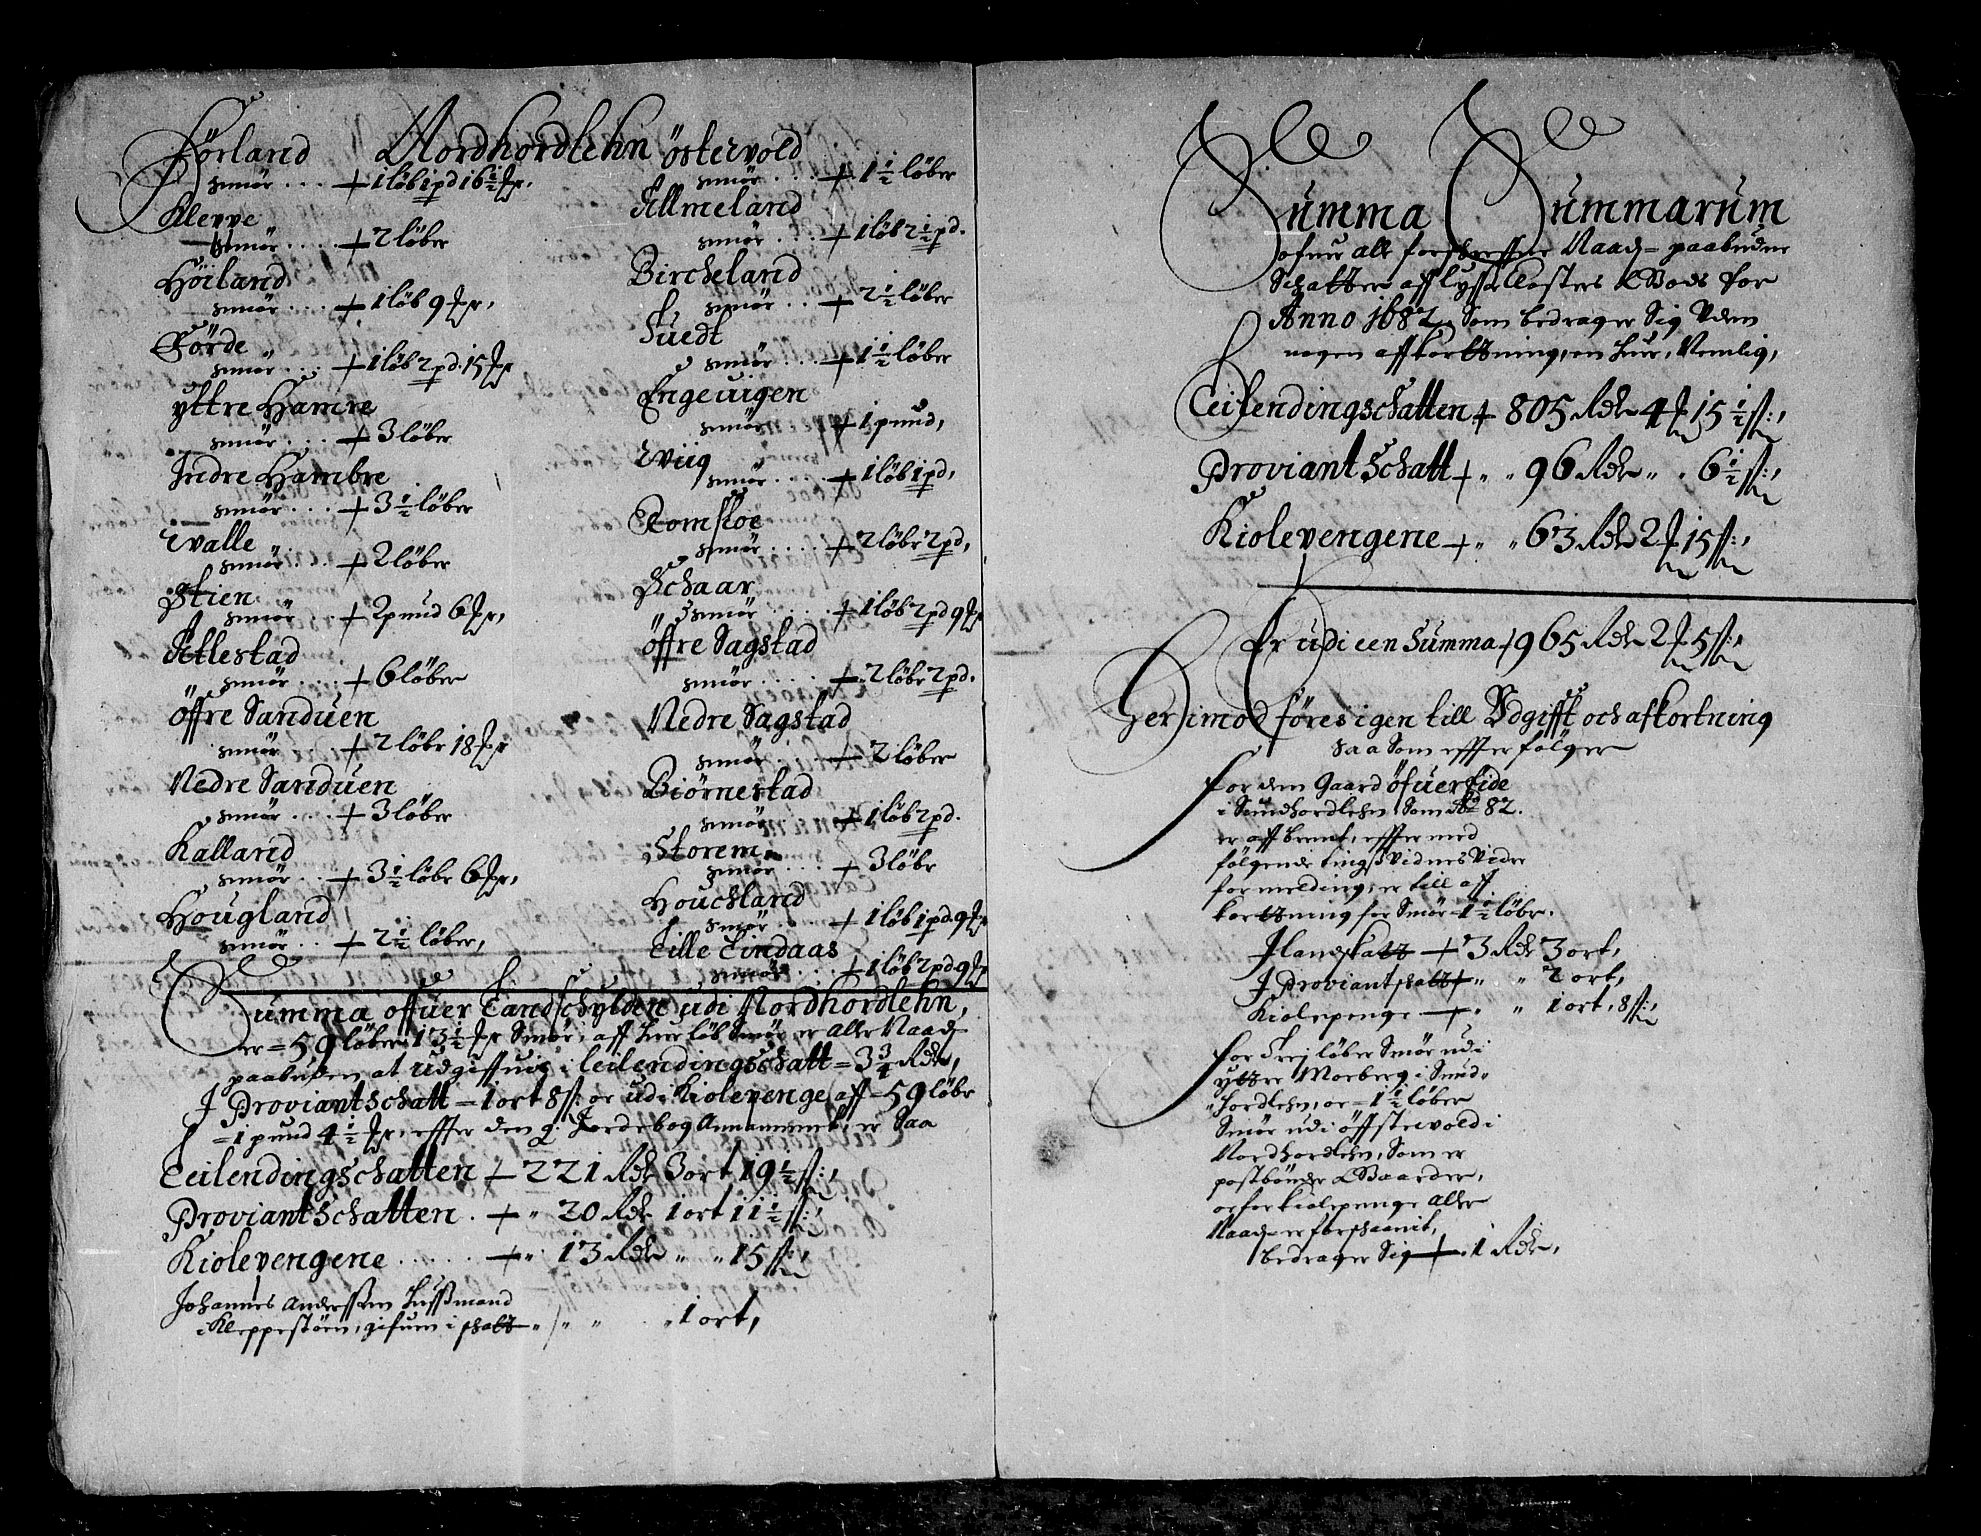 Nordhordlehn
Førland
smør . . . + 1 løb 1 pd 16½ ℔r.
Kleppe
smør . . . . + 2 løber
Høiland
smør . . . + 1 løb 9 ℔r,
Förde
smør . . . + 1 løb 2 pd. 15 ℔r
yttre Hamre
smør . . . + 3 løber
Indre Hambre
smør . . . + 3½ løber
Walle
smør . . . + 2 løber
Stien
smør . . . + 2 pund 6 ℔r,
Attestad
smør . . . + 6 løber
öffre Sanduen
smør . . . + 2 løbr 18 ℔r
Nedre Sanduen
smør . . . + 3 løber
Kalland
smør . . + 3½ løbr 6 ℔r,
Hougland
smør . . + 2½ løber,
östervold
smør . . . + 1½ løber
Allmeland
smør . . . + 1 løb 2½ pd.
Bircheland
smør . . + 2½ løber
Tuedt
smør . . . + 1½ løber
Engeuigen
smør . . . + 1 pund,
Wiig
smør . . . . + 1 løb 1 pd,
Romsloe
smør . . . . + 2 løbr 2 pd,
Schaar
smør . . . . + 1 løb 2 pd 9 ℔r
öffre Sagstad
smør . . . . + 2 løbr 2 pd.
Nedre Sagstad
smør . . . + 2 løber
Biörnestad
smør . . . + 1 løb 2 pd.
Storem
smør . . . + 3 løbr
Houchland
smør . . . + 1 løb 1 pd. 9 ℔r
Lille Lindaas
smør . . . + 1 løb 2 pd 9 ℔r
Summa offuer Landschylden udi Nordhordlehn,
er = 59 løber 13½ ℔r Smør, aff huer løb Smør er alle Naad=
paabuden at udgiffuis i leilendingsschatt = 3¾ Rdr,
I Proviantschatt = 1 ort 8 ß: oc udi Kiolepenge aff = 59 løbr
= 1 pund 4½ ℔r, effter den g. Jordebog Annamme, er Saa
Leilendingschatten + 221 Rdr 3 ort 19½ ß:,
Proviantschatten . + „ 20 Rdr 1 ort 11½ ß:,
Kiolepengene . . . . . + „ 13 Rdr „ „ 15 ß:,
Johannes Anderssøn Hussmand
i Kleppestøen, gifuen i schatt „ / „ „ „ 1 ort,
Summa Summarum
ofuer alle forschreffne Naad= paabudne
Schatter aff Lysse Closters Gods for
Anno 1682, Som bedrager Sig Uden
nogen affkortning, en huer, Nemlig,
Leilendingschatten + 805 Rdr 4 ℔ 15½ ß:,
Proviant Schatt + „ „ 96 Rdr „ „ 6½ ß:,
Kiolepengene + „ „ 63 Rdr 2 ℔ 15 ß:,
Er udi een Summa + 965 Rdr 2 ℔ 5 ß:,
Herimod føres igen till Udgifft och afkortning
saa Som effter følger
for dem Gaard öfuer Eide
i Sundhordlehn, Som Ao 82.
er aff brendt, effter med
følgende tingsvidnes Vider
formelding, er till aff
kortning for Smør = 1½ løbr.
I landskatt + 3 Rdr 3 ort,
I Proviantschatt + „ „ 2 ort,
Kiolepenge + „ „ 1 ort, 8 ß:,
for Trej løber Smør udi
yttre Morberg i Sund=
hordlehn, oc = 1½ løber
Smør udi öffstevold i
Nordhordlehn, Som er
postbønder Gaarder,
oc for kiolepenge aller
Naad= er forschaanit,
bedrager Sig + 1 Rdr,